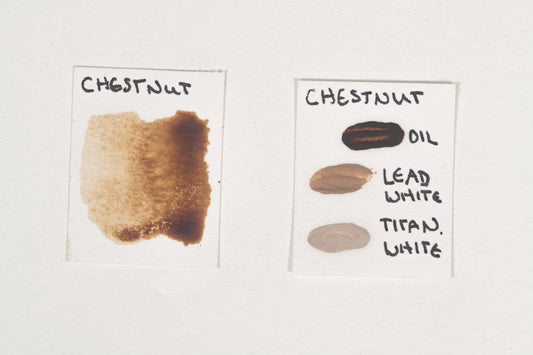 CHESTNUT
CHESTNUT
OIL
LEAD
WHITE
TITAN.
WHITE